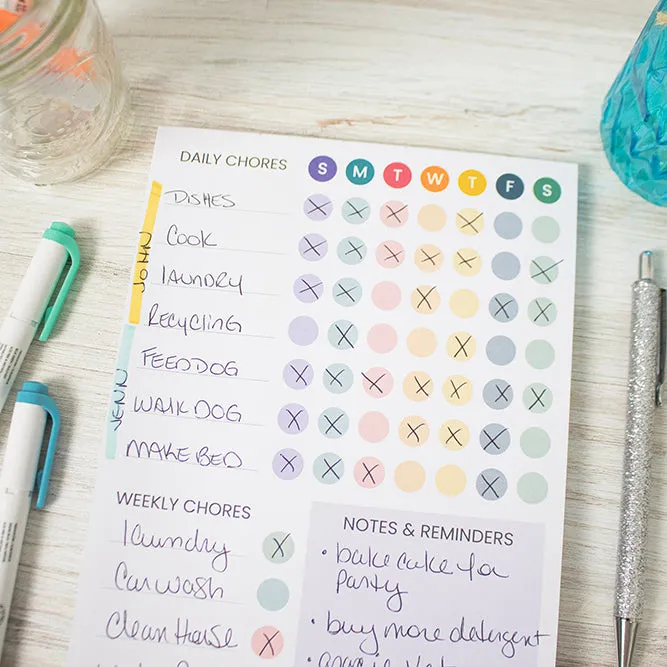 DAILY CHORES S M T W T F S
JOHN
DISHES X X X X
COOK X X X X X X
LAUNDRY X X X X X
RECYCLING X X
JENN
FEED DOG X X X X X X X
WALK DOG X X X X X
MAKE BED X X X X
WEEKLY CHORES
laundry X
Car wash
Clean House X
NOTES & REMINDERS
• bake cake for
party
• buy more detergent